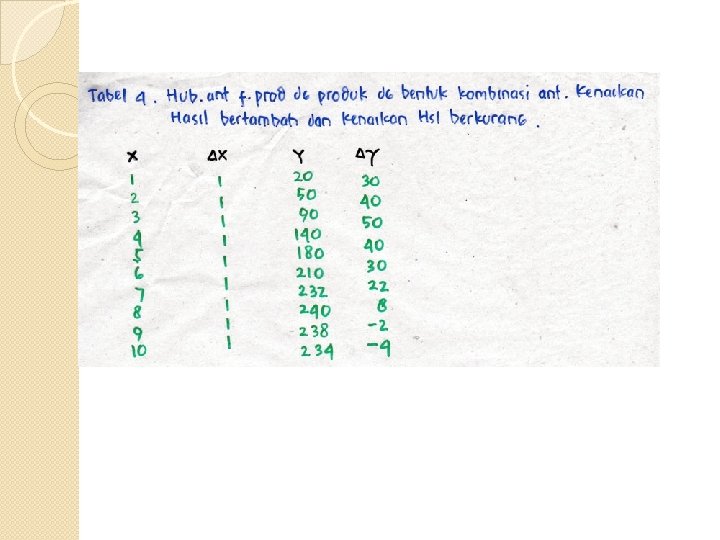 Tabel 4. Hub. ant f. prod dg produk dg bentuk kombinasi ant. Kenaikan
Hasil bertambah dan kenaikan Hsl berkurang.
X ΔX Y ΔY
1 1 20 30
2 1 50 40
3 1 90 50
4 1 140 40
5 1 180 30
6 1 210 22
7 1 232 8
8 1 240 -2
9 1 238 -4
10 234